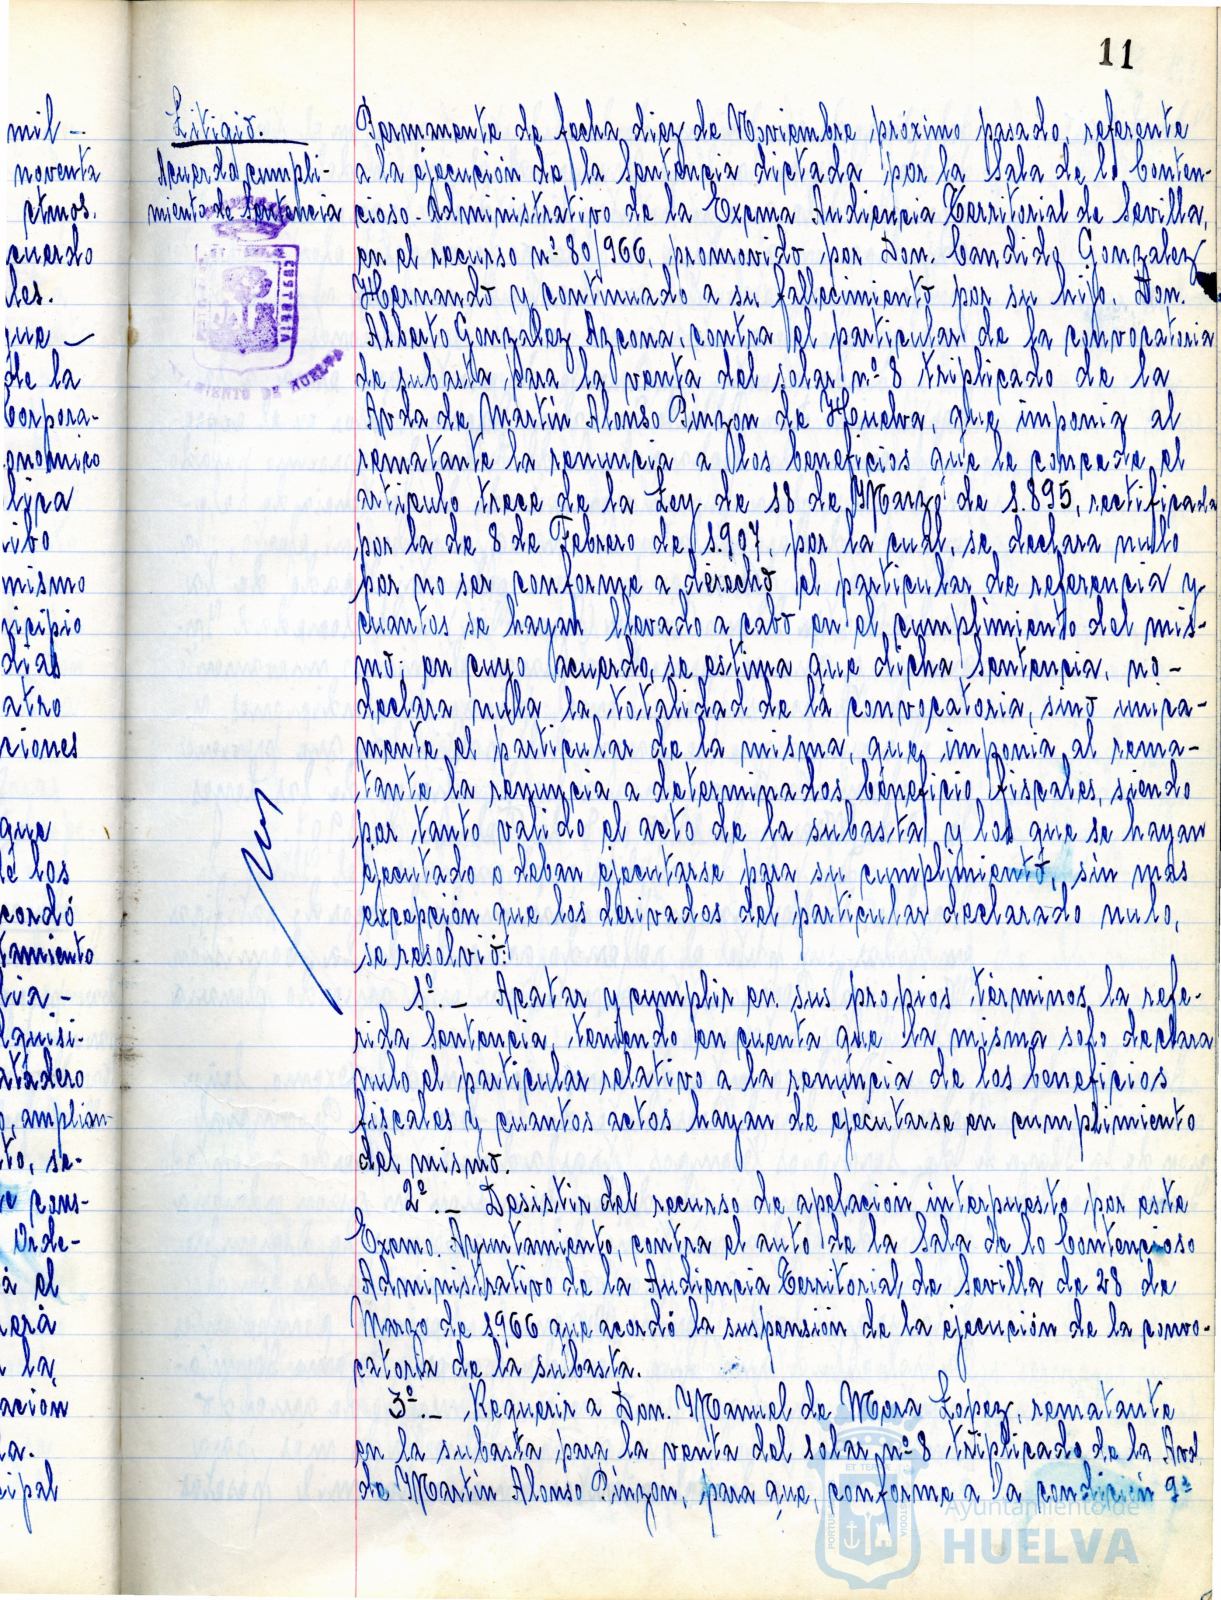 11
mil -
noventa
ctmos.
cuerdo
les.
que -
de la
Corpora-
onomico
lyra
ivo
mismo
nicipio
dias
atro
ciones
que
de los
cordó
tamiento
lia -
lquisi-
atadero
, amplian
to, se-
cons-
Orde-
a el
nerà
la
ación
la.
cipal
Litigio.
Acuerdo cumpli-
miento de Sentencia
Permanente de fecha diez de Noviembre próximo pasado, referente
a la ejecución de la Sentencia dictada por la Sala de lo Conten-
cioso-Administrativo de la Excma Audiencia Territorial de Sevilla,
en el recurso nº 80/966, promovido por Don. Candido Gonzalez
Hernando y continuado a su fallecimiento por su hijo, Don.
Alberto Gonzalez Azcona, contra el particular de la convocatoria
de subasta para la venta del solar nº 8 triplicado de la
Avda de Martín Alonso Pinzon de Huelva, que imponia al
rematante la renuncia a los beneficios que le concede el
articulo trece de la Ley de 18 de Marzo de 1.895, rectificada
por la de 8 de Febrero de 1.907, por la cual, se declara nulo
por no ser conforme a derecho el particular de referencia y
cuantos se hayan llevado a cabo en el cumplimiento del mis-
mo; en cuyo acuerdo, se estima que dicha Sentencia, no -
declara nula la totalidad de la convocatoria, sino unica-
mente el particular de la misma, que imponia al rema-
tante la renuncia a determinados beneficio fiscales, siendo
por tanto valido el acto de la subasta y los que se hayan
ejecutado o deban ejecutarse para su cumplimiento, sin mas
excepción que los derivados del particular declarado nulo,
se resolvió:
1º.- Acatar y cumplir en sus propios términos la refe-
rida Sentencia, teniendo en cuenta que la misma solo declara
nulo el particular relativo a la renuncia de los beneficios
fiscales y cuantos actos hayan de ejecutarse en cumplimiento
del mismo.
2º.- Desistir del recurso de apelación interpuesto por este
Excmo. Ayuntamiento, contra el auto de la Sala de lo Contencioso
Administrativo de la Audiencia Territorial de Sevilla de 28 de
Marzo de 1.966 que acordó la suspensión de la ejecución de la convo-
catoria de la subasta.
3º.- Requerir a Don. Manuel de Mora Lopez, rematante
en la subasta para la venta del solar nº 8 triplicado de la Avd
de Martín Alonso Pinzon, para que, conforme a la condición 9ª
Ayuntamiento de
HUELVA